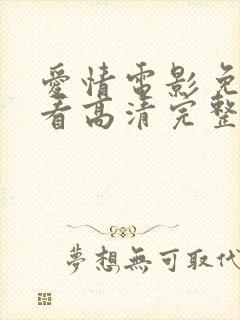 愛情電影免
看高清完整
夢想無可取代